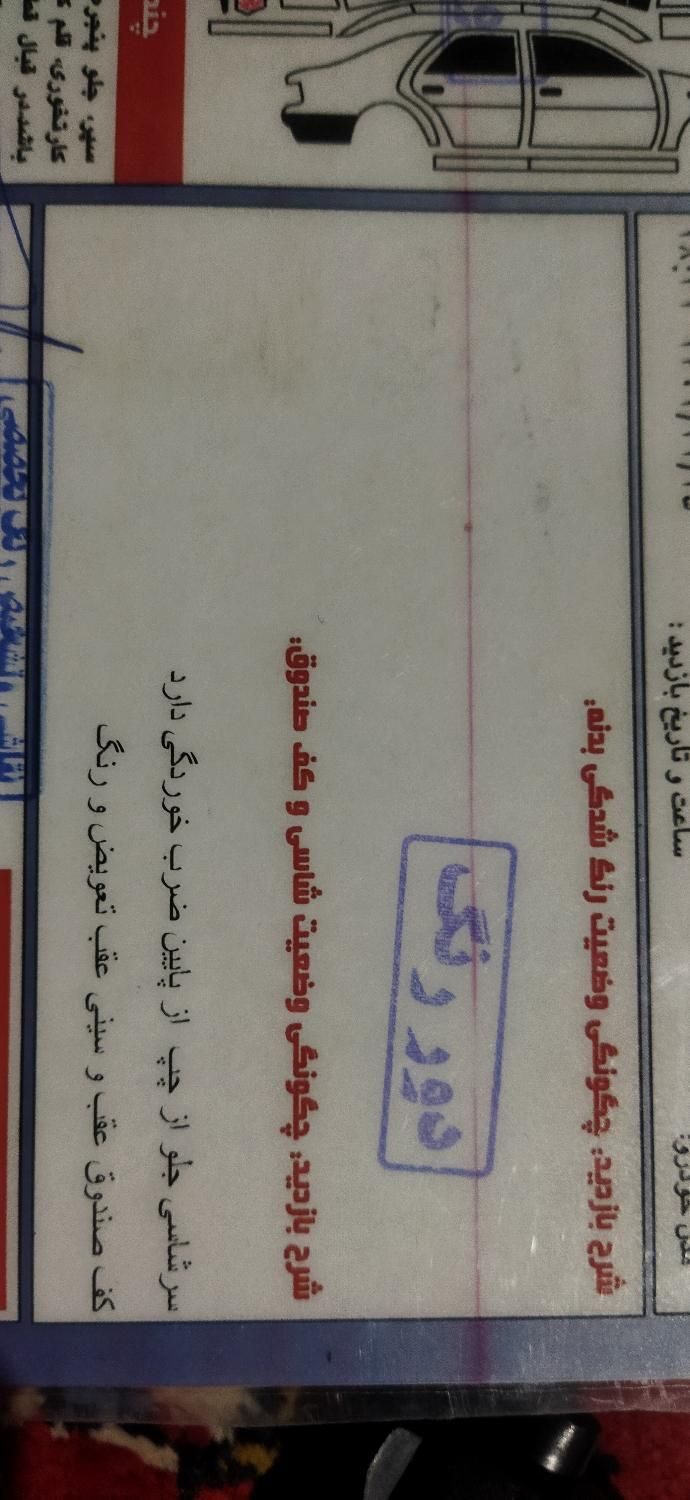 ساعت و تاریخ بازدید :
شرح بازدید: چگونگی وضعیت رنگ شدگی بدنه:
دور رنگ
شرح بازدید: چگونگی وضعیت شاسی و کف صندوق:
سر شاسی جلو از چپ از پایین ضرب خوردگی دارد
کف صندوق عقب و سینی عقب تعویض و رنگ
سپر، جلو پنجره